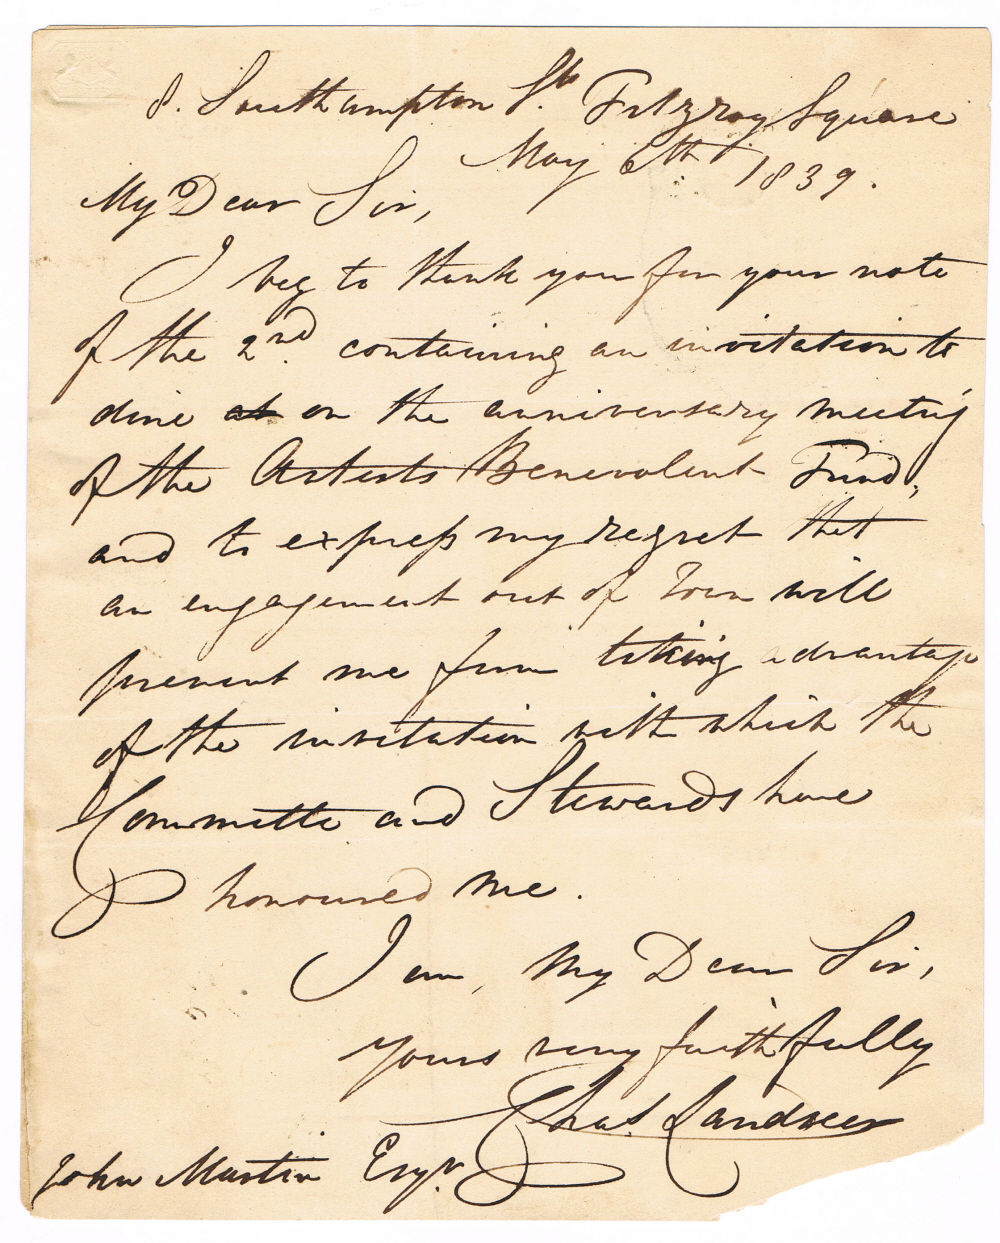 8. Southampton St. Fitzroy Square
May 6th 1839.
My Dear Sir,
I beg to thank you for your note
of the 2nd. containing an invitation to
dine at on the anniversary meeting
of the Artists Benevolent Fund,
and to express my regret that
an engagement out of Town will
prevent me from taking advantage
of the invitation with which the
Committee and Stewards have
honoured me.
I am, My Dear Sir,
Yours very faithfully
Chas. Landseer
John Martin Esqr.